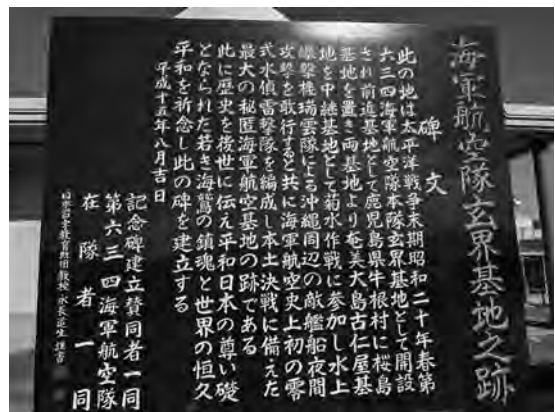 海軍航空隊玄界基地之跡
碑文
此の地は太平洋戦争末期昭和二十年春第
六三四海軍航空隊本隊玄界基地として開設
され前進基地として鹿児島県牛根村に桜島
基地を置き両基地より奄美大島古仁屋基
地を中継基地として菊水作戦に参加し水上
爆撃機瑞雲隊による沖縄周辺の敵艦船夜間
攻撃を敢行すると共に海軍航空史上初の零
式水偵雷撃隊を編成し本土決戦に備えた
最大の秘匿海軍航空基地の跡である
此に歴史を後世に伝え平和日本の尊い礎
となられた若き海鷲の鎮魂と世界の恒久
平和を祈念し此の碑を建立する
平成十五年八月吉日
記念碑建立賛同者一同
第六三四海軍航空隊
在隊者一同